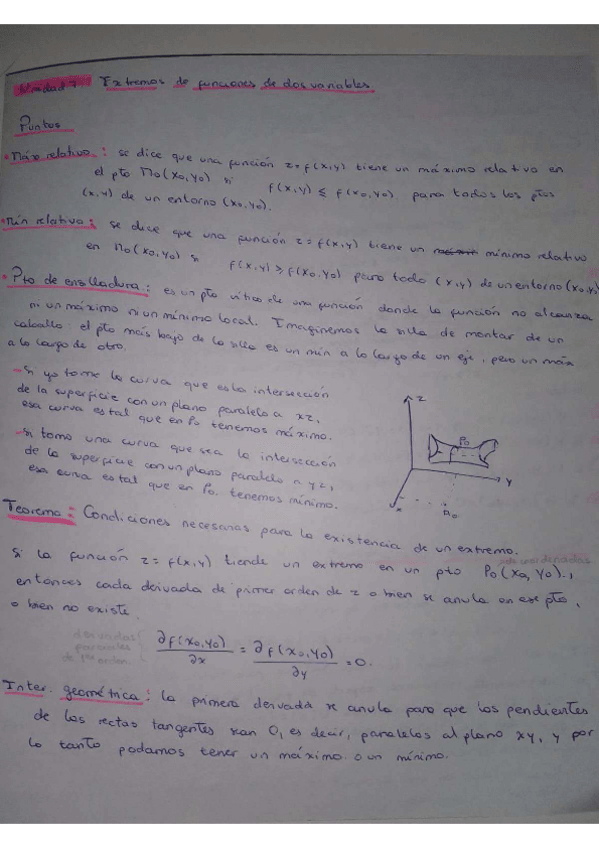 Unidad 7 Extremos de funciones de dos variables.
Puntos
• Máx relativo: se dice que una función z=f(x,y) tiene un máximo relativo en
el pto M0(x0,y0) si f(x,y) ≤ f(x0,y0). para todos los ptos
(x,y) de un entorno (x0,y0).
• Mín relativo: se dice que una función z=f(x,y) tiene un mínimo relativo
en M0(x0,y0) si f(x,y) ≥ f(x0,y0) para todo (x,y) de un entorno (x0,y0)
• Pto de ensilladura: es un pto crítico de una función donde la función no alcanza
ni un máximo ni un mínimo local. Imaginemos la silla de montar de un
caballo: el pto más bajo de la silla es un mín a lo largo de un eje, pero un máx
a lo largo de otro.
- Si yo tomo la curva que es la intersección
de la superficie con un plano paralelo a xz,
esa curva es tal que en P0 tenemos máximo.
- Si tomo una curva que sea la intersección
de la superficie con un plano paralelo a yz,
esa curva es tal que en P0. tenemos mínimo.
z
P0
y
x
Teorema: Condiciones necesarias para la existencia de un extremo.
Si la función z=f(x,y) tiende un extremo en un pto P0(x0,y0).,
entonces cada derivada de primer orden de z o bien se anula en ese pto,
o bien no existe.
derivadas
parciales
de 1er orden
∂f(x0,y0)/∂x = ∂f(x0,y0)/∂y = 0.
Inter. geométrica: la primera derivada se anula para que las pendientes
de las rectas tangentes sean 0, es decir, paralelas al plano xy, y por
lo tanto podamos tener un máximo o un mínimo.